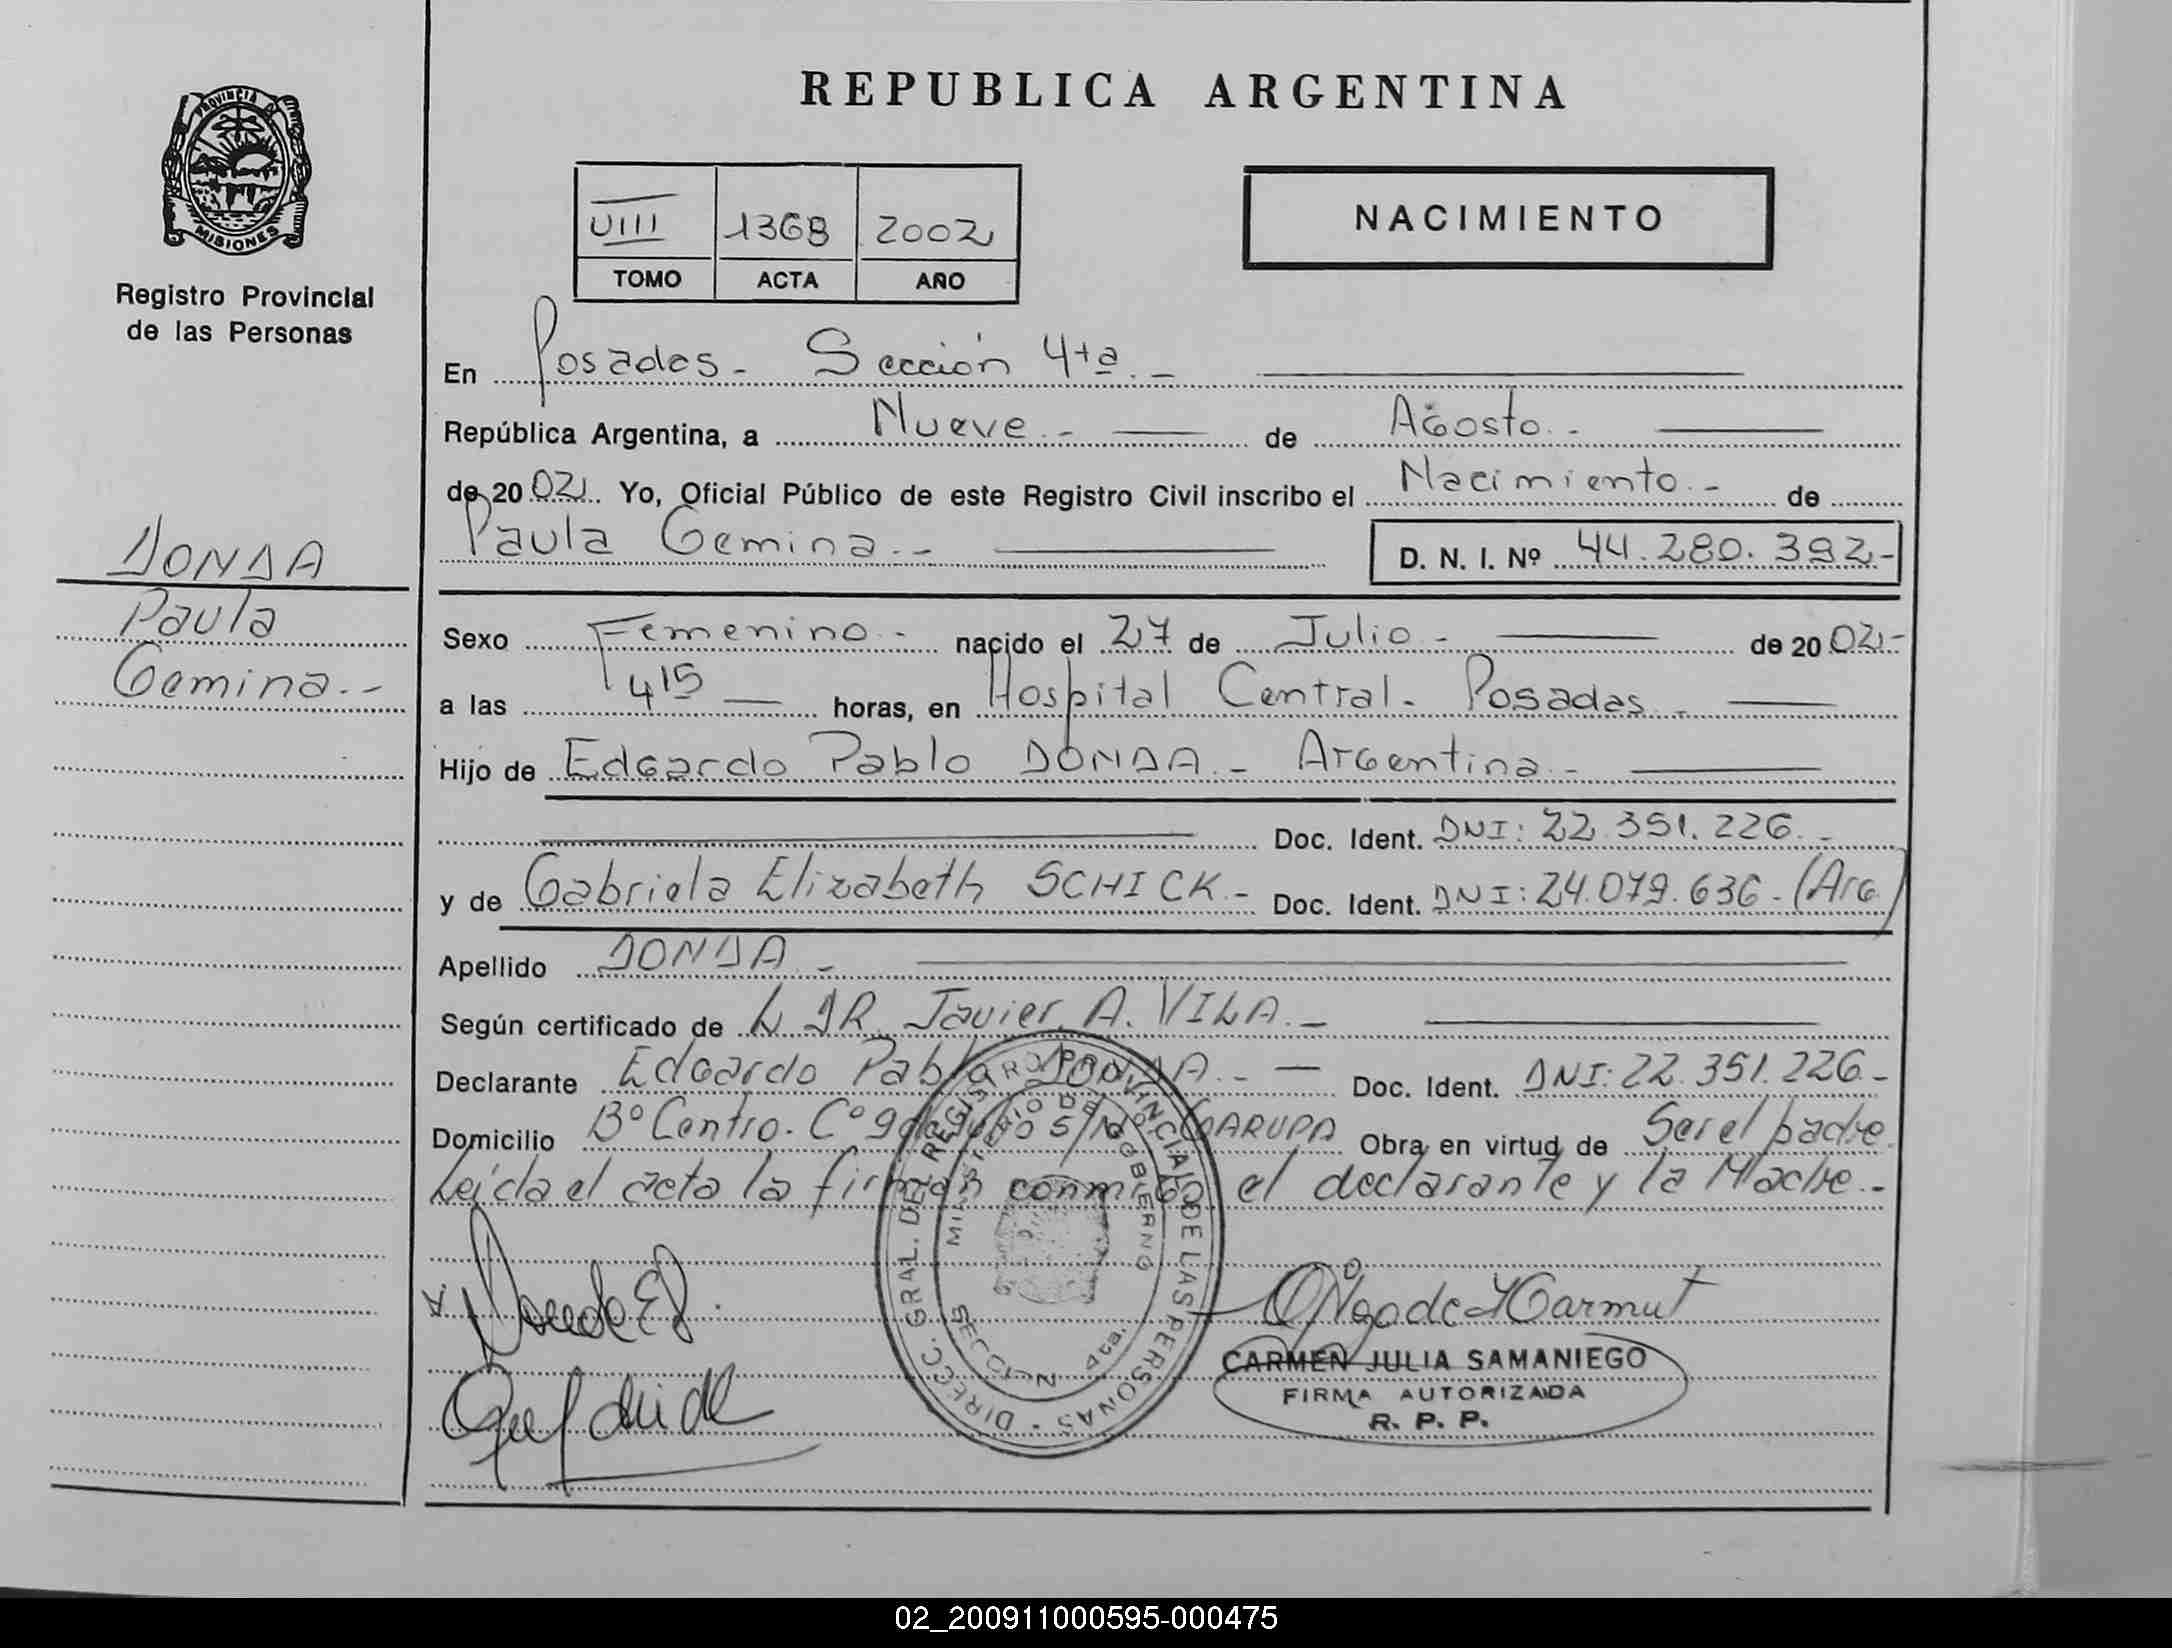 REPUBLICA ARGENTINA
PROVINCIA DE
MISIONES
Registro Provincial
de las Personas
VIII 1368 2002
TOMO ACTA AÑO
NACIMIENTO
En Posadas - Sección 4ta. -
República Argentina, a Nueve. - de Agosto. -
de 2002. Yo, Oficial Público de este Registro Civil inscribo el Nacimiento. - de
Paula Gemina. -
D. N. I. Nº 44.280.392-
DONDA
Paula
Gemina. -
Sexo Femenino. - nacido el 27 de Julio - de 2002-
a las 4 15 horas, en Hospital Central. Posadas. -
Hijo de Edgardo Pablo DONDA. - Argentina. -
Doc. Ident. DNI: 22.351.226. -
y de Gabriela Elizabeth SCHICK. - Doc. Ident. DNI: 24.079.636 - (Arg.)
Apellido DONDA. -
Según certificado de DR. Javier. A. VILA. -
Declarante Edgardo Pablo DONDA. - Doc. Ident. DNI: 22.351.226. -
Domicilio Bº Centro. S/Nº GARUPA Obra en virtud de Ser el padre.
Leída el acta la firman conmigo el declarante y la Madre. -
DIRECC. GRAL. DEL REGISTRO PROVINCIAL DE LAS PERSONAS
MINISTERIO DE GOBIERNO
SECCION 4ta.
CARMEN JULIA SAMANIEGO
FIRMA AUTORIZADA
R. P. P.
02_200911000595-000475